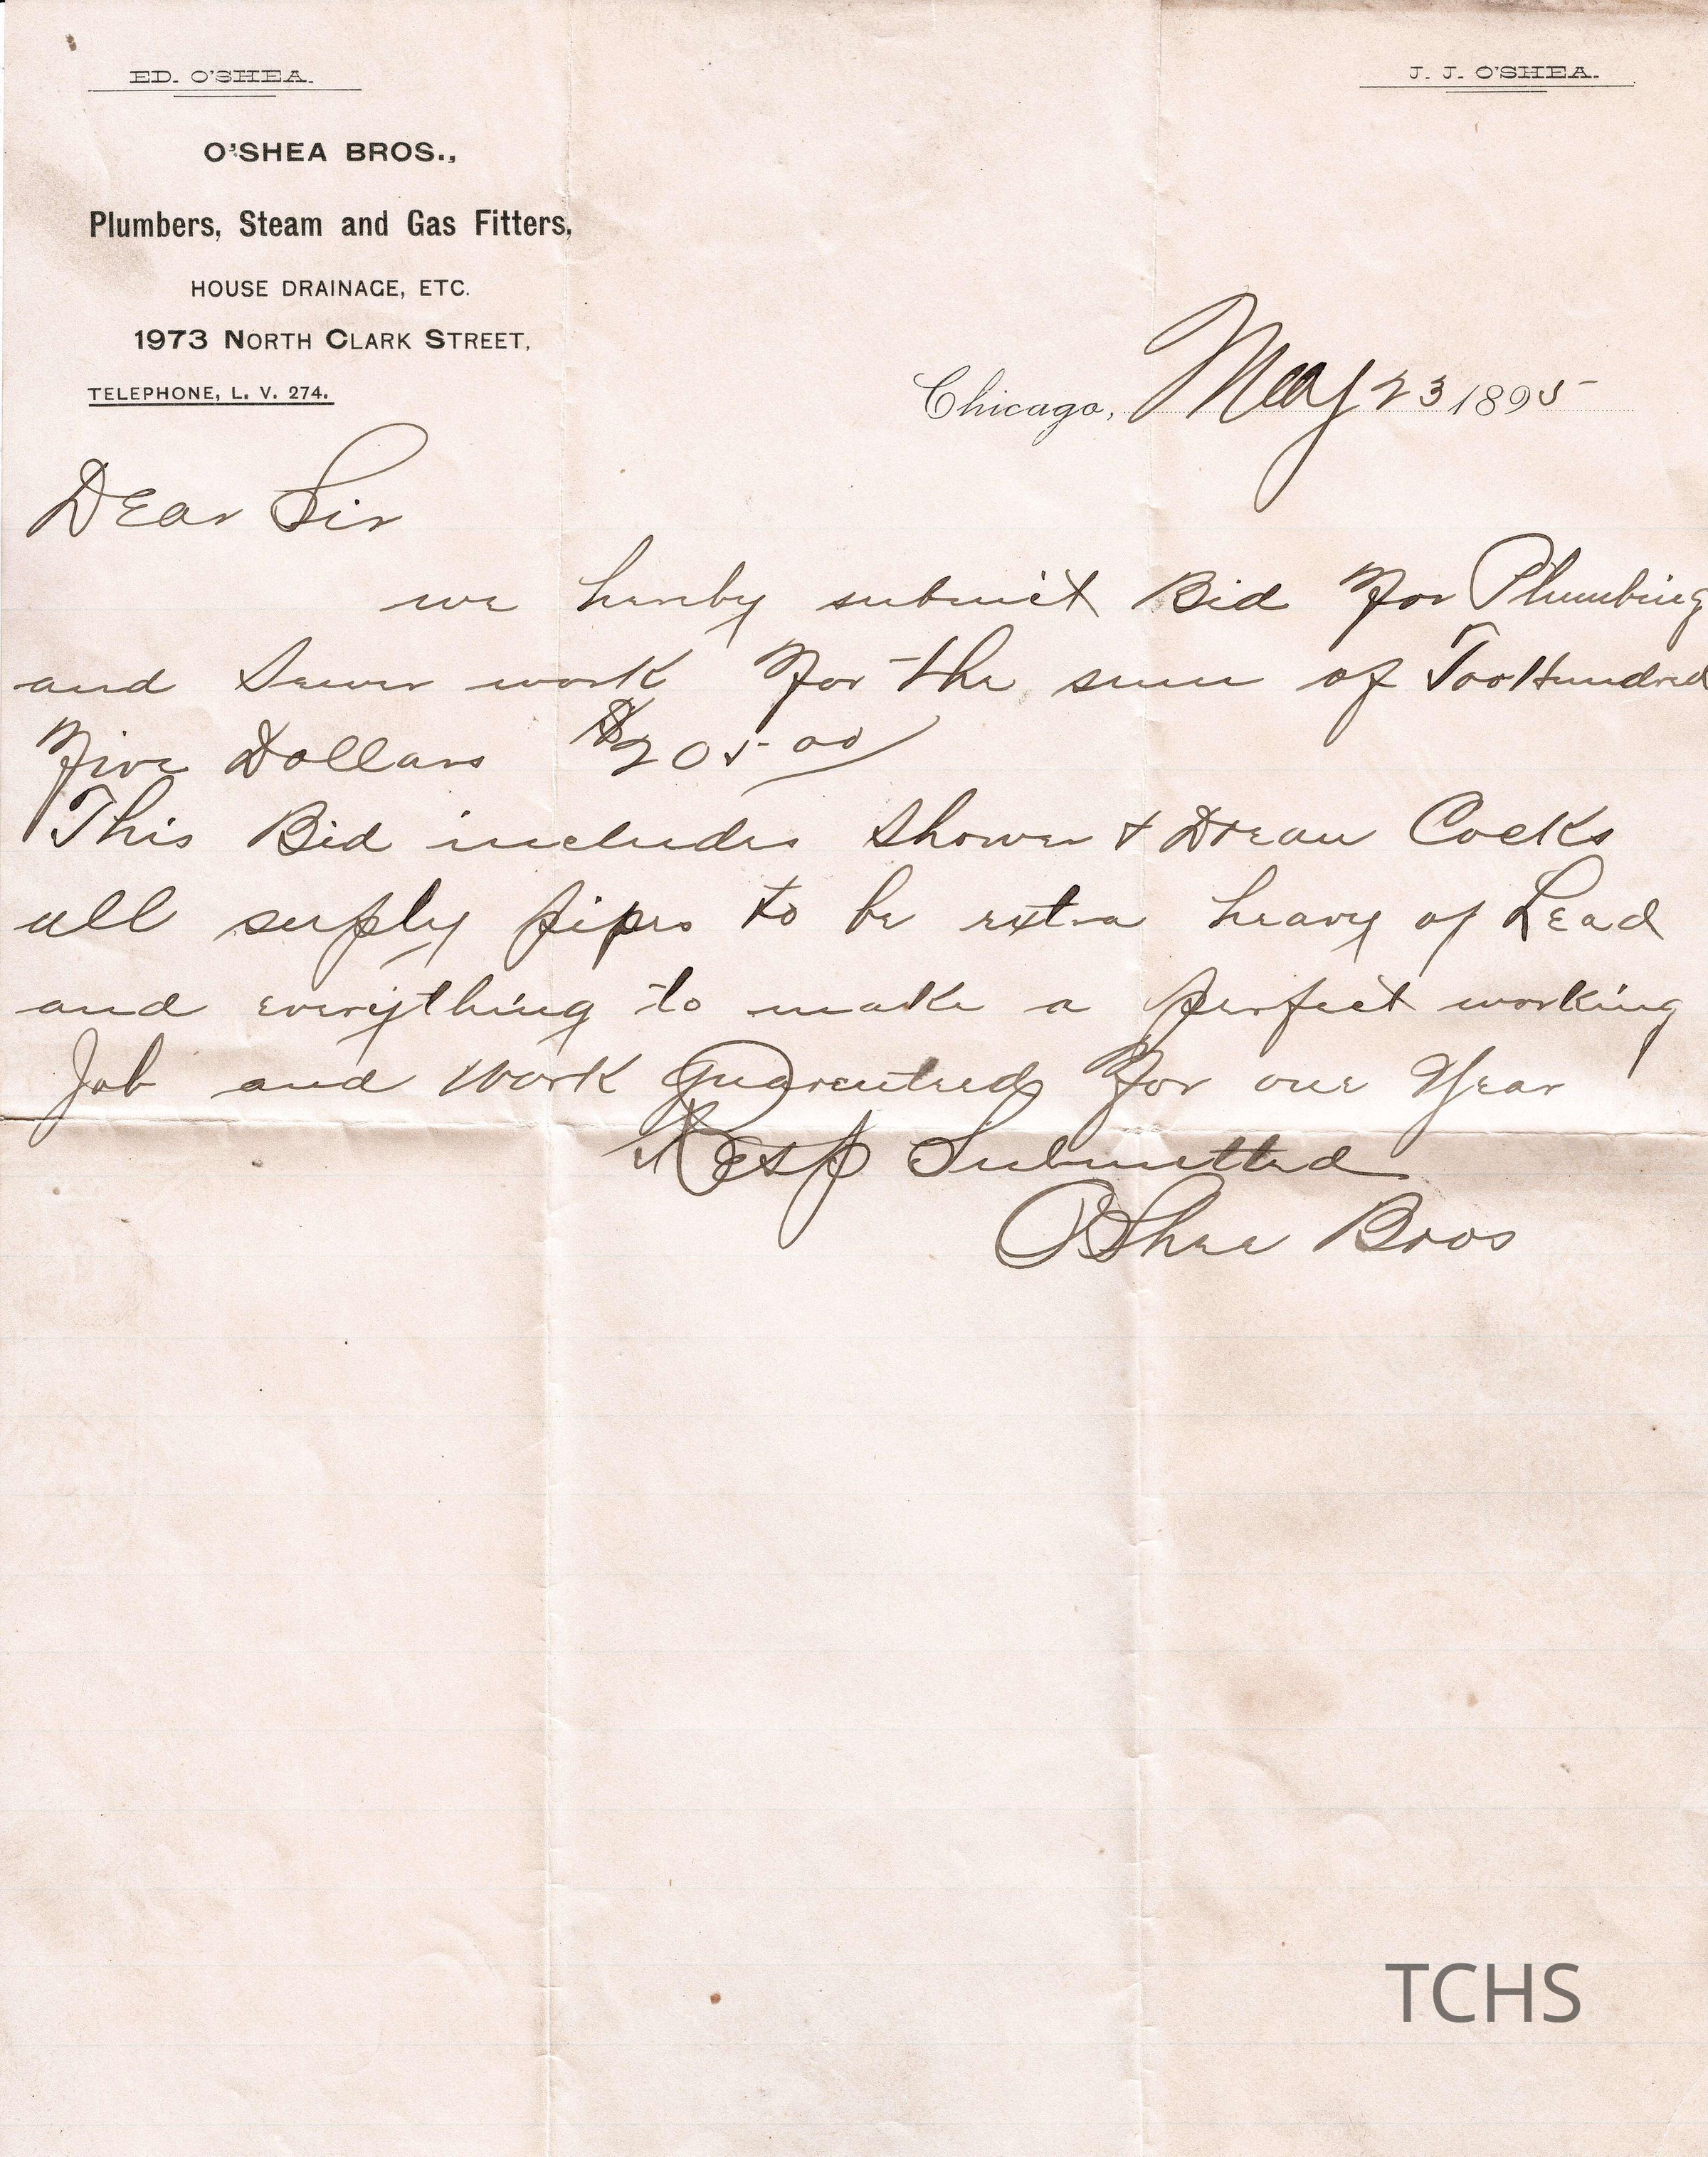 ED. O'SHEA.
J. J. O'SHEA.
O'SHEA BROS.,
Plumbers, Steam and Gas Fitters,
HOUSE DRAINAGE, ETC.
1973 NORTH CLARK STREET,
TELEPHONE, L. V. 274.
Chicago, May 23 1895
Dear Sir
we hereby submit Bid For Plumbing
and Sewer work For the sum of Too Hundred
Five Dollars $205.00
This Bid includes Shower + Drean Cocks
all supply pipes to be extra heavy of Lead
and everything to make a perfect working
Job and Work Guarenteed For one Year
Resp Submitted
O'Shea Bros
TCHS